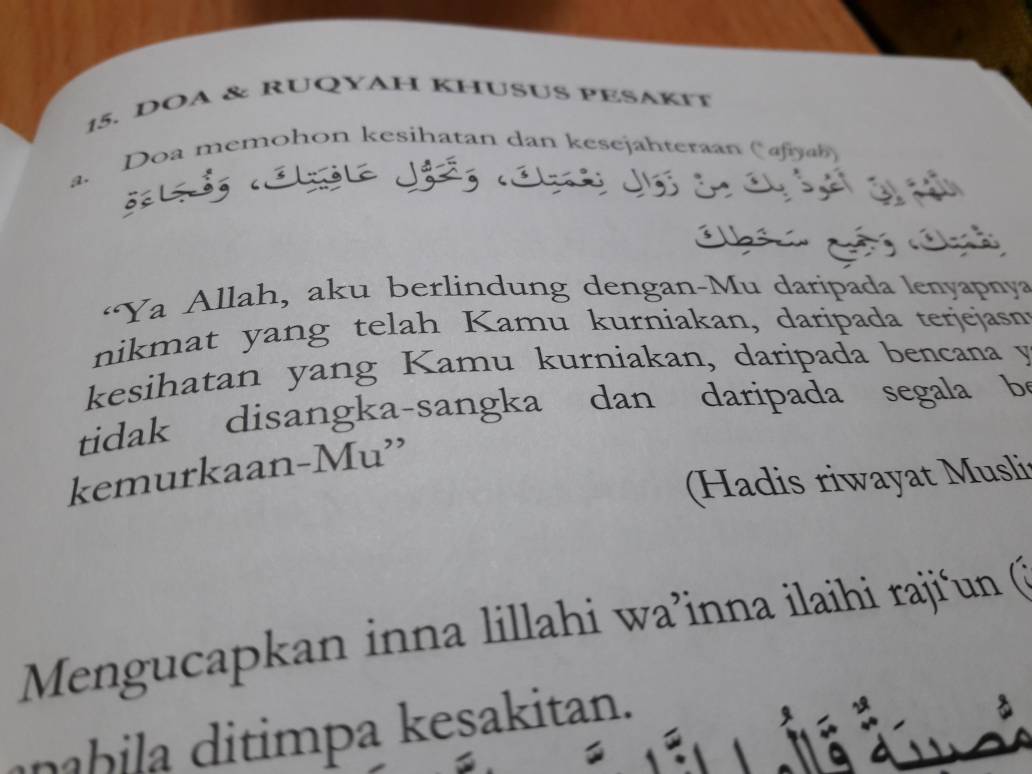 15. DOA & RUQYAH KHUSUS PESAKIT
a. Doa memohon kesihatan dan kesejahteraan (‘afiyah)
اللَّهُمَّ إِنِّي أَعُوذُ بِكَ مِنْ زَوَالِ نِعْمَتِكَ، وَتَحَوُّلِ عَافِيَتِكَ، وَفُجَاءَةِ
نِقْمَتِكَ، وَجَمِيعِ سَخَطِكَ
“Ya Allah, aku berlindung dengan-Mu daripada lenyapnya
nikmat yang telah Kamu kurniakan, daripada
kesihatan yang Kamu kurniakan, daripada bencana
tidak disangka-sangka dan daripada segala
kemurkaan-Mu”
(Hadis riwayat
Mengucapkan inna lillahi wa’inna ilaihi raji‘un (
apabila ditimpa kesakitan.
مُّصِيبَةٌ قَالُوا